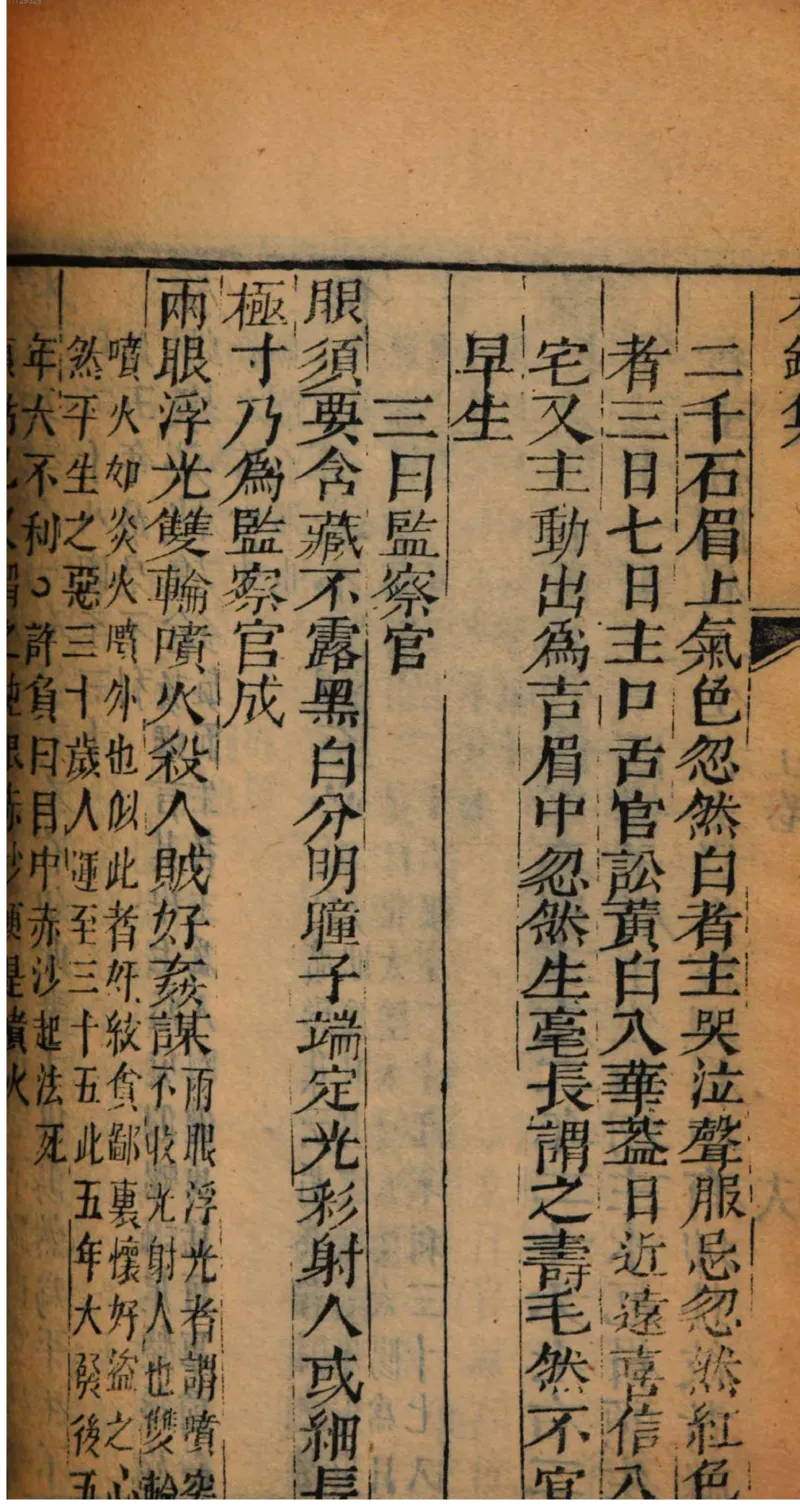 二千石眉上氣色忽然白者主哭泣聲服忌忽然紅色
者三日七日主口舌官訟黃白入華蓋日近遠喜信入
宅又主動出爲吉眉中忽然生毫長謂之壽毛然不宜
早生
三曰監察官
眼須要含藏不露黑白分明瞳子端定光彩射人或細長
極寸乃爲監察官成
兩眼浮光雙輪噴火殺人賊好姦謀
兩眼浮光者謂噴突
不收光射人也雙輪
噴火如炎火噴外也似此者好殺貪鄙裏懷好盜之心
然平生之惡三十歲人運至三十五此五年大發後五
年大不利〻許負曰目中赤沙起法死